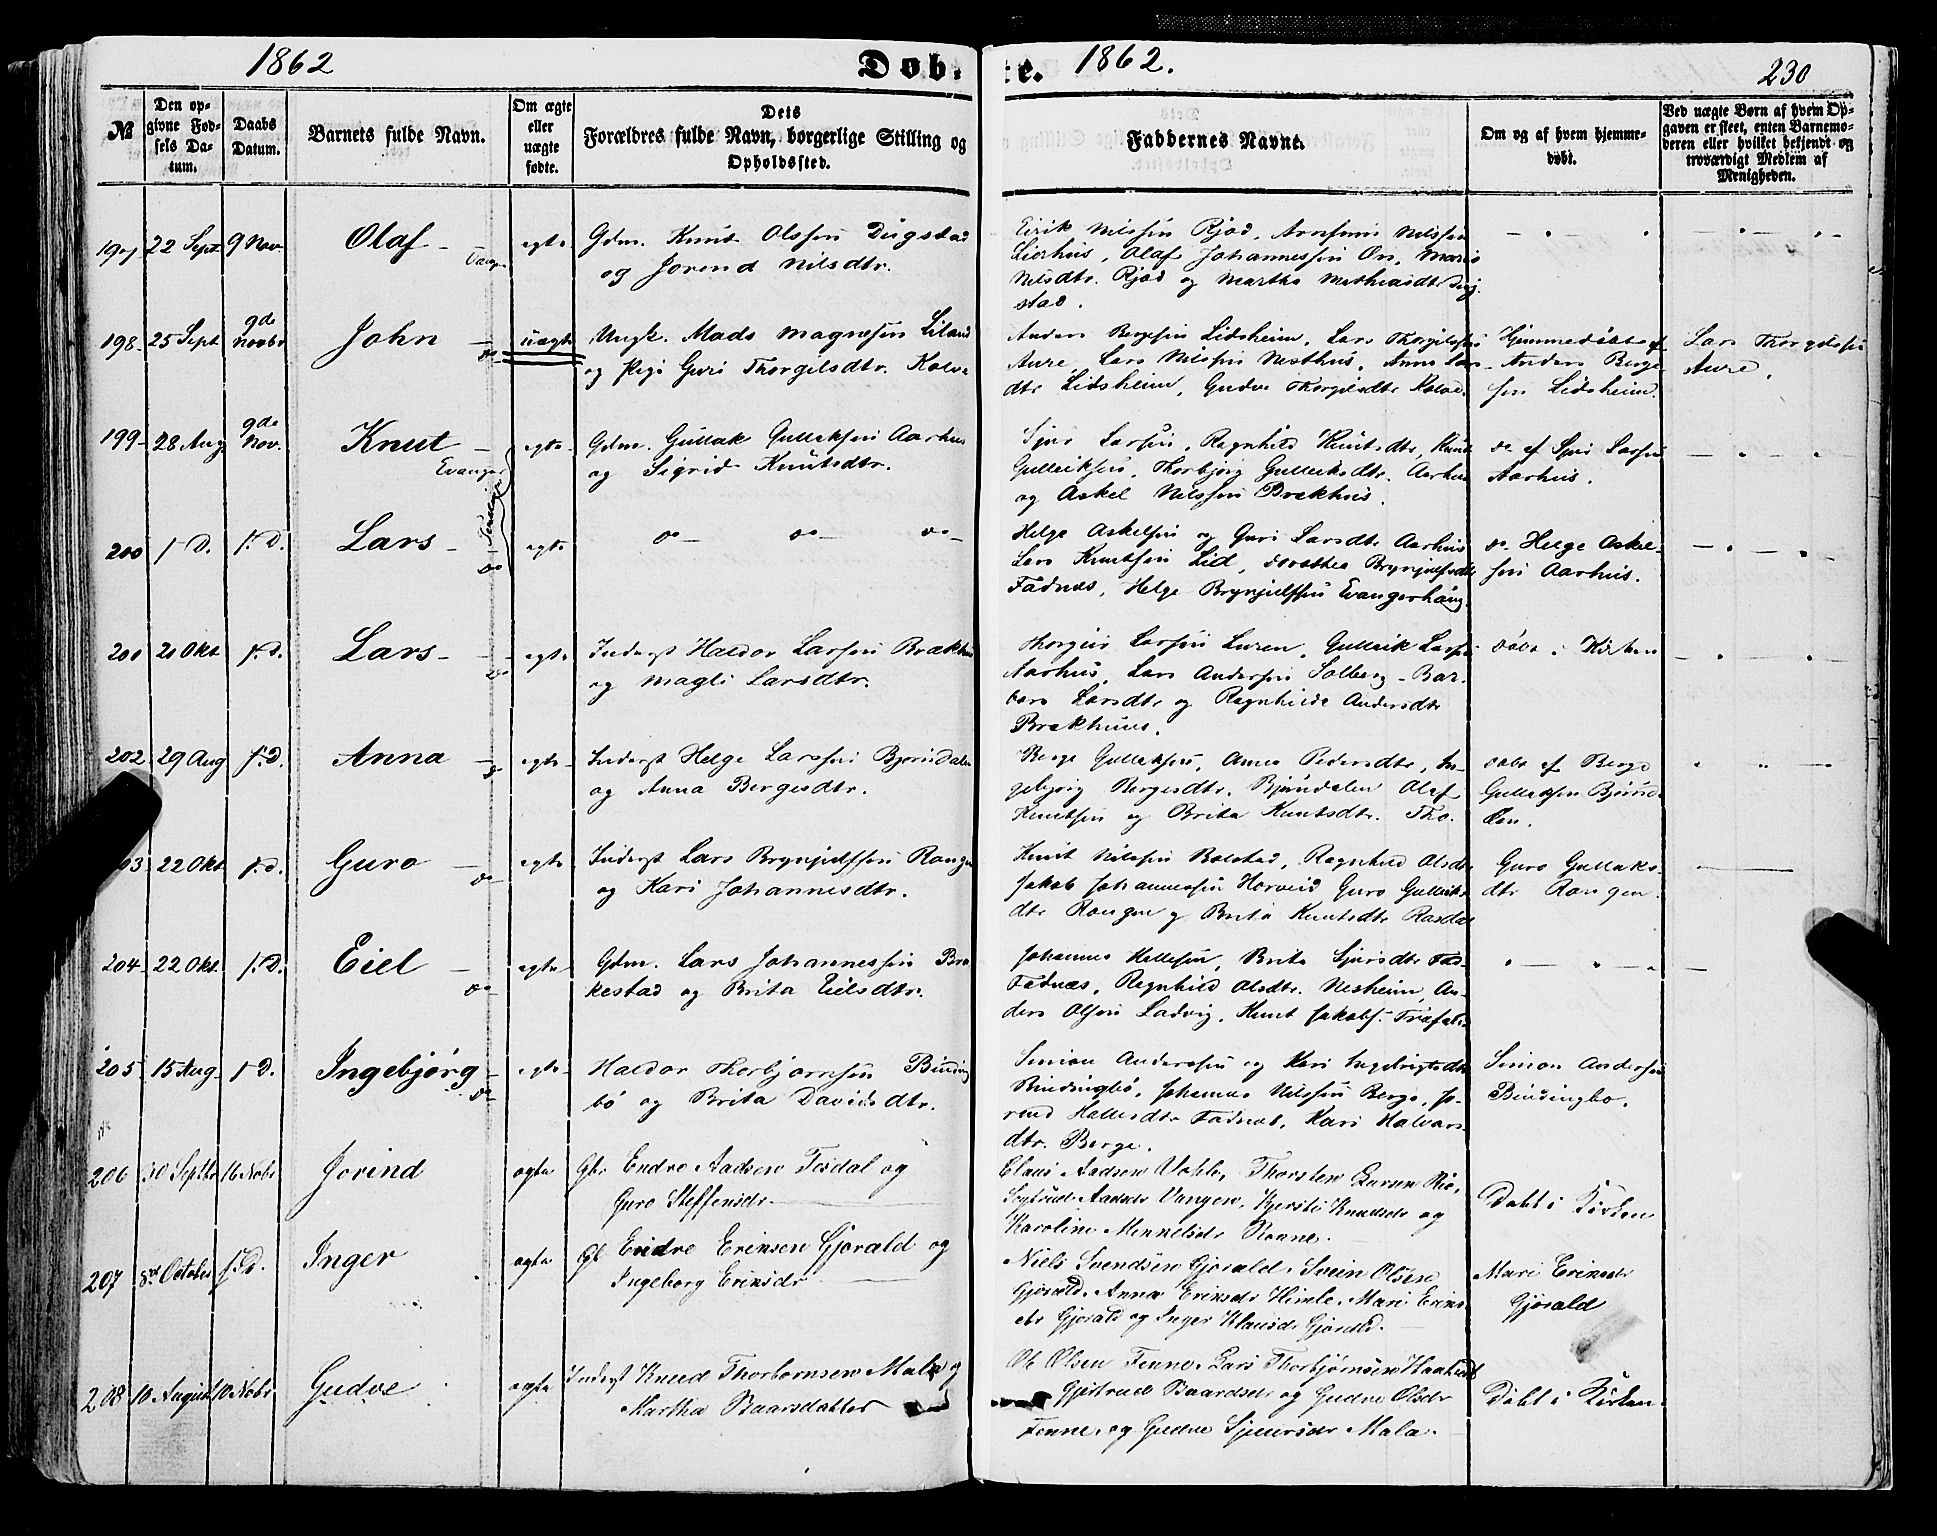 1862
Døb.
te.
1862.
230
№
Den opgivne Fødsels Datum.
Daabs Datum.
Barnets fulde Navn.
Om ægte eller uægte fødte.
Dets Forældres fulde Navn, borgerlige Stilling og Opholdssted.
Faddernes Navne.
Om og af hvem hjemmedøbt.
Ved uægte Børn af hvem Opgaven er skeet, enten Barnemoderen eller hvilket bekjendt og troværdigt Medlem af Menigheden.
22 Sept 9 Nov. Olaf egte Gdm. Knut Olssen Dugstad
og Jorend Nilsdtr.
Eirik Nilssen Rjod, Nilssen
Olaf Johannessen
Nilsdtr. Rjod og Martha
stad.
198 25 Sept 9de Novbr John uægte Ungk. Mads Magnesen Liland
og Pige Guri Thorgilsdtr. Kolve
Anders Bergesen Lidsheim, Lars Thorgilssen
Aure, Lars Nilssen Nesthus, Anna Lars
dtr Lidsheim, Gudve Thorgilsdtr Kolve.
Hjemmedøbt af
Anders Berge
sen Lidsheim.
Lars Thorgilssen
Aure.
199 28 Aug 9de Nov. Knut egte Gdm. Gullak Gullaksen Aarhus
og Sigrid Knutsdtr.
Evanger
Tvillinger
Sjur Larssen, Ragnhild Knutsdtr, Knut
Gulleiksen, Thorbjørg Gulleiksdtr. Aarhus
og Askel Nilssen Brækhus.
do af Sjur Larssen
Aarhus.
200 f. D. f. D. Lars egte do do do
Helge Askelsen og Guri Larsdtr Aarhus
Lars Knutssen Lid, Dorothea Brynjulfsdtr
Fadnes, Helge Brynjulfsen Evangerhaug.
do Helge Askel-
sen Aarhus.
20 Okt f. D. Lars egte Inderst Haldor Larssen Brækhus
og Magli Larsdtr.
Thorgeir Larssen Luren, Gulleik Larssen
Aarhus, Lars Anderssen Solberg - Bar-
bara Larsdtr og Ragnhilda Andersdtr
Brækhus.
døbt i Kirken
202 29 Aug f. D. Anna egte Inderst Helge Larssen Bjørndalen
og Anna Bergesdtr.
Berge Gullaksen, Anna Pedersdtr, In-
gebjørg Bergesdtr. Bjørndalen Olaf
Knutsen og Brita Knutsdtr.
døbt af Berge
Gullaksen Bjørnda-
len.
03 22 Okt f. D. Guro egte Inderst Lars Brynjulfssen Rongen
og Kari Johannesdtr.
Knut Nilssen Bolstad, Ragnhild Olsdtr
Jakob Johannessen Horveid Guro Gullaks
dtr Rongen og Brita Knutsdtr Rasdal
Guro Gullaks
dtr Rongen.
204 22 Okt f. D. Eiel egte Gdm. Lars Johannessen Bra
kestad og Brita Eielsdtr.
Johannes Hellesen, Brita Sjursdtr
Fadnes, Ragnhild Olsdtr. Nesheim, An-
ders Olsen Ladvig, Knut Jakobs.
205 15 Aug f. D. Ingebjørg egte Haldor Thorbjørnsen Binding
bø og Brita Davidsdtr.
Simon Anderssen og Kari Ingebrigtsdtr
Bindingbø, Johannes Nilssen Berge, Jo-
rend Hallesdtr Fadnes, Kari Halvors
dtr. Berge.
Simon Anderssen
Bindingbø.
206 30 Septbr 16 Nobr Jorind ægte Gbr Endre Aadsen Tesdal og
Guro Steffensdr.
Claus Aadsen Thorsten Larsen
Aadsdr Vangen, Kjersti Knudsdr og
Karoline Ronne.
Døbt i Kirken
207 8de October f. D. Inger ægte Gb Endre Eriksen Gjorald og
Ingeborg Eriksdr
Niels Svendsen Gjerald, Svein Olsen
Gjerald, Anna Eriksdr Himle, Mari Eriks-
dr Gjerald og Inger Klausdr Gjerald.
Mari Eriksdr
Gjerald
208 10 August 10 Nobr Gudve ægte Inderst Knud Thorbjørnsen Mala og
Martha Baarsdatter
Ole Olsen Fenne, Lars Thorbjørnsen
Gjertrud Baardsdr og Gudve Olsdr
Fenne, og Gudve Sjursdr Mala.
Døbt i Kirken.